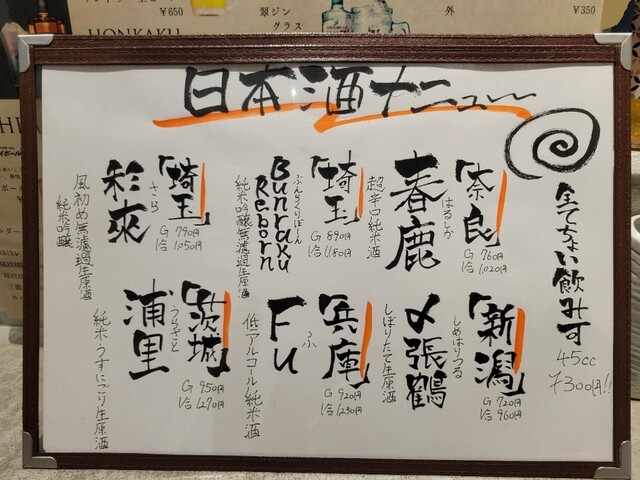 ¥650
HONKAKU
翠ジン
グラス
外
¥350
日本酒メニュー
全てちょい飲み可
45cc
¥300円!!
「奈良」
G 760円
1合 1,020円
はるしか
春鹿
超辛口純米酒
「埼玉」
G 890円
1合 1,180円
ぶんらくりぼーん
Bunraku
Reborn
純米吟醸無濾過生原酒
「埼玉」
G 790円
1合 1,050円
さら
彩來
風初め無濾過生原酒
純米吟醸
「新潟」
G 720円
1合 960円
しめはりつる
〆張鶴
しぼりたて生原酒
「兵庫」
G 920円
1合
ふ
Fu
低アルコール純米酒
「茨城」
G 950円
1合 1,270円
うらざと
浦里
純米うすにごり生原酒